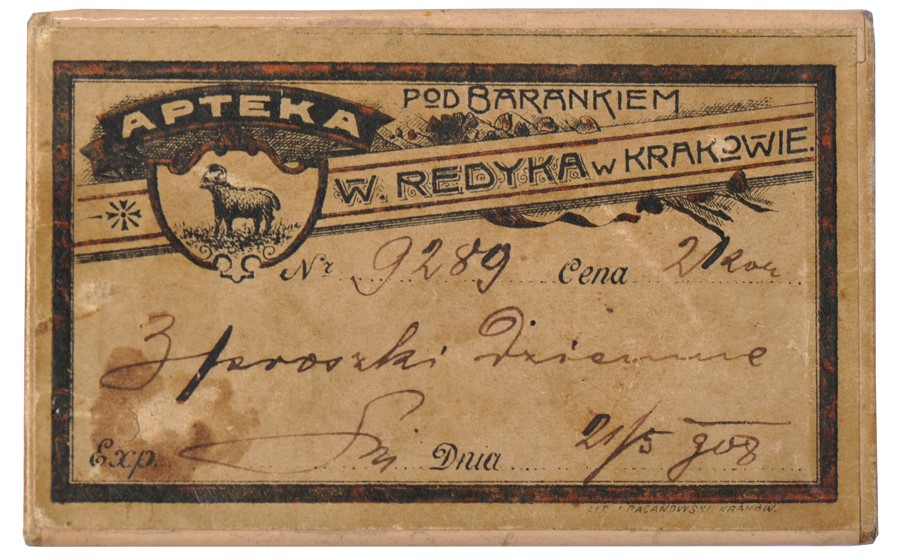 APTEKA
POD BARANKIEM
W. REDYKA W KRAKOWIE.
Nr 9289 Cena 2 kor
3 proszki Dziennie
Exp. Dnia 21/5 908
LIT. PAGANOWSKI KRAKÓW.